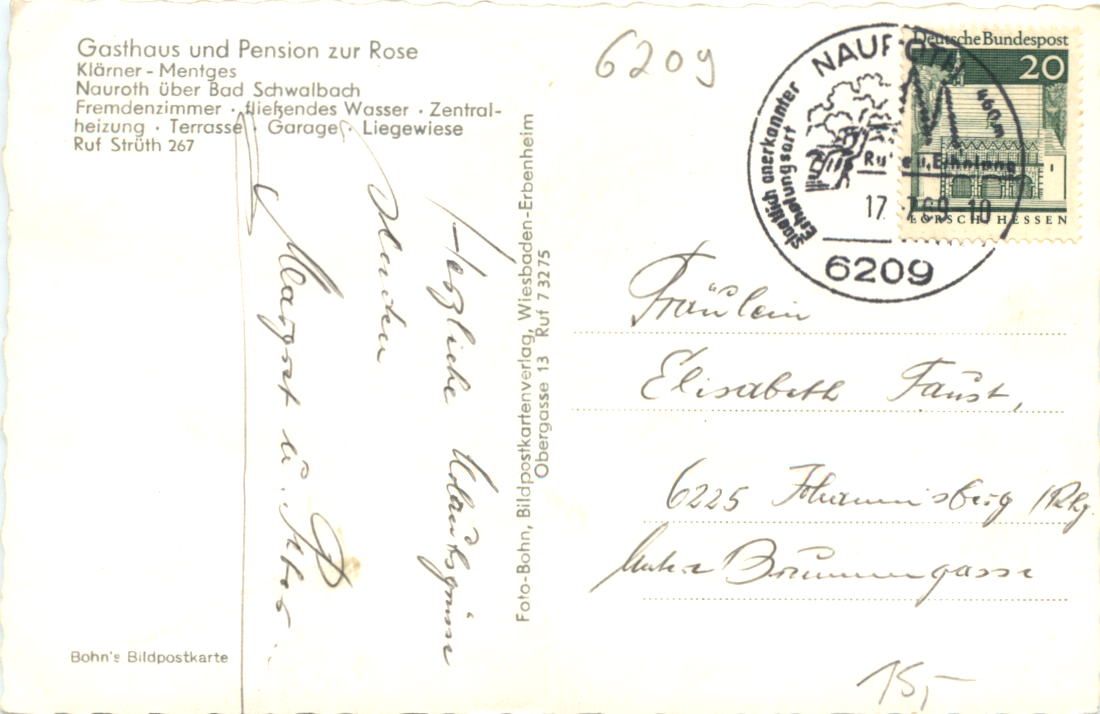 Gasthaus und Pension zur Rose
Klärner - Mentges
Nauroth über Bad Schwalbach
Fremdenzimmer · fließendes Wasser · Zentral-
heizung · Terrasse · Garage · Liegewiese
Ruf Strüth 267
6209
NAUROTH
460m
staatlich anerkannter
Erholungsort
Ruhe u. Erholung
17.-7.69-10
6209
Deutsche Bundespost
20
LORSCH/HESSEN
Herzliche Urlaubsgrüsse
senden
Margret u.
Foto-Bohn, Bildpostkartenverlag, Wiesbaden-Erbenheim
Obergasse 13 Ruf 73275
Fräulein
Elisabeth Faust,
6225 Johannisberg /Rhg.
Brunnengasse
Bohn's Bildpostkarte
15,-